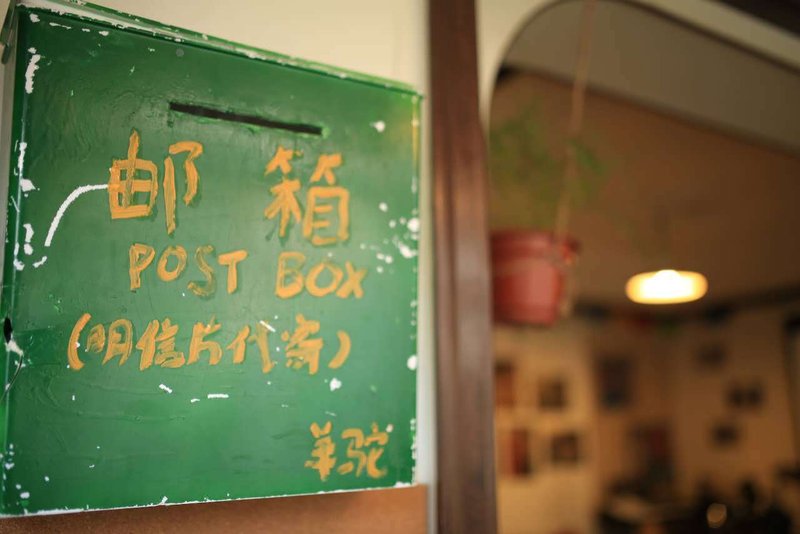 邮箱
POST BOX
(明信片代寄)
羊驼